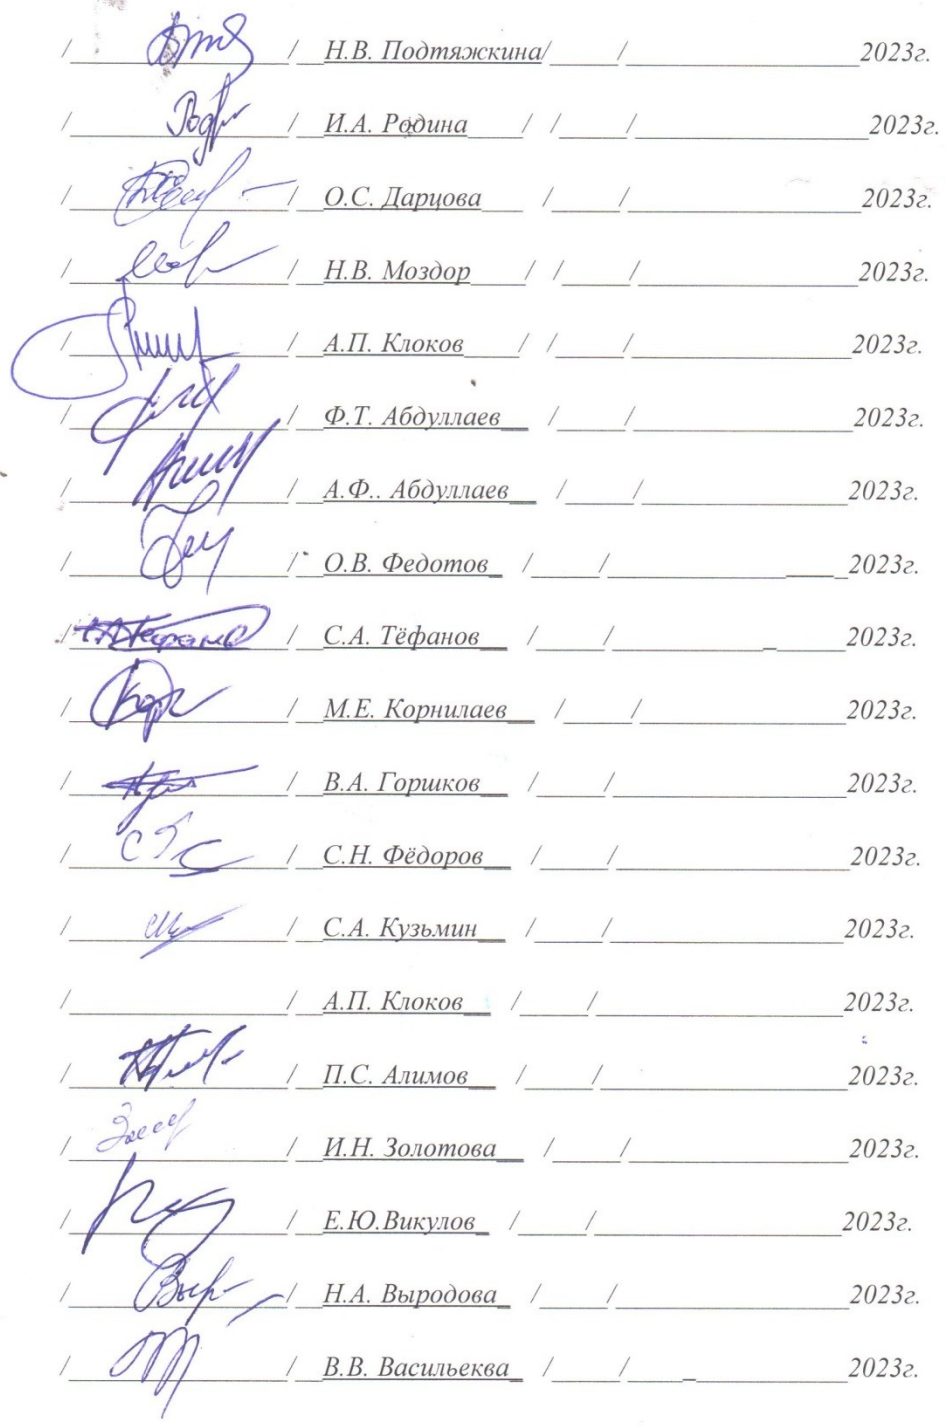 / / Н.В. Подтяжкина/ / 2023г.
/ / И.А. Родина / / / 2023г.
/ / О.С. Дарцова / / 2023г.
/ / Н.В. Моздор / / / 2023г.
/ / А.П. Клоков / / / 2023г.
/ / Ф.Т. Абдуллаев / / 2023г.
/ / А.Ф.. Абдуллаев / / 2023г.
/ / О.В. Федотов / / 2023г.
/ / С.А. Тёфанов / / 2023г.
/ / М.Е. Корнилаев / / 2023г.
/ / В.А. Горшков / / 2023г.
/ / С.Н. Фёдоров / / 2023г.
/ / С.А. Кузьмин / / 2023г.
/ / А.П. Клоков / / 2023г.
/ / П.С. Алимов / / 2023г.
/ / И.Н. Золотова / / 2023г.
/ / Е.Ю.Викулов / / 2023г.
/ / Н.А. Выродова / / 2023г.
/ / В.В. Васильеква / / 2023г.